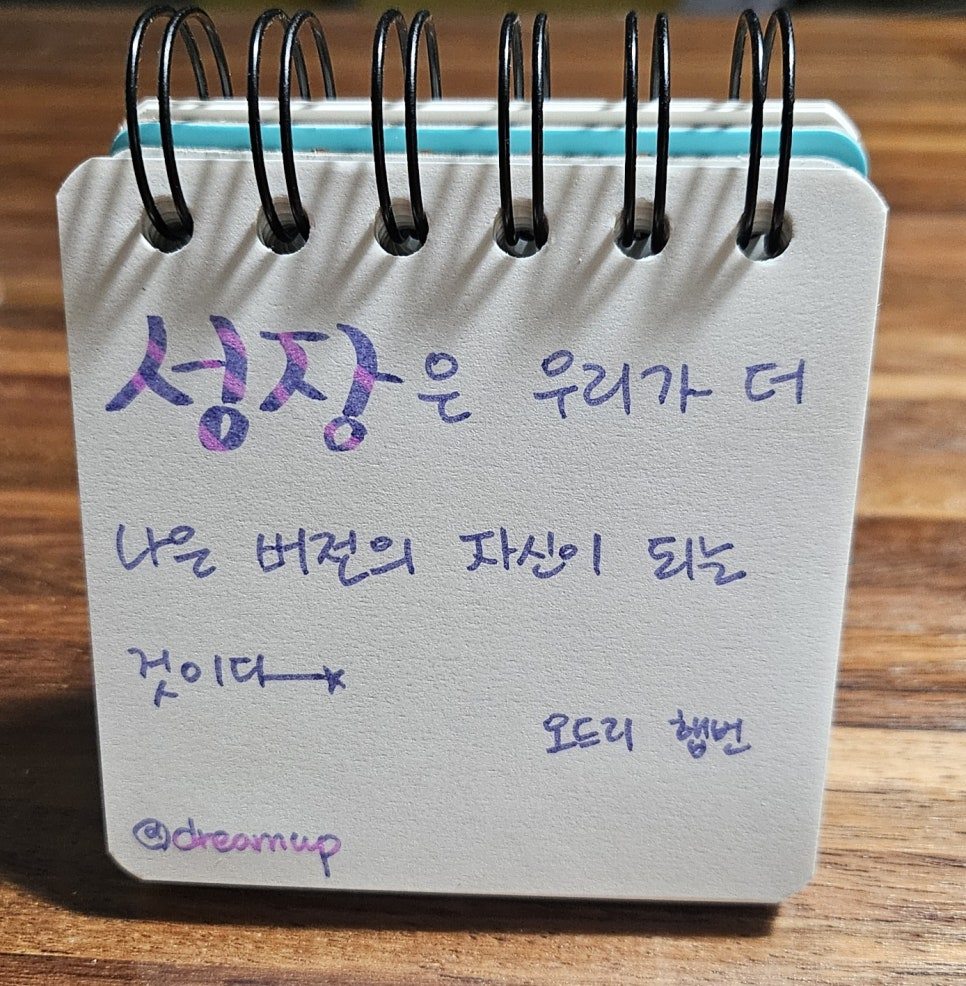 성장은 우리가 더
나은 버전의 자신이 되는
것이다
오드리 햅번
@dreamup